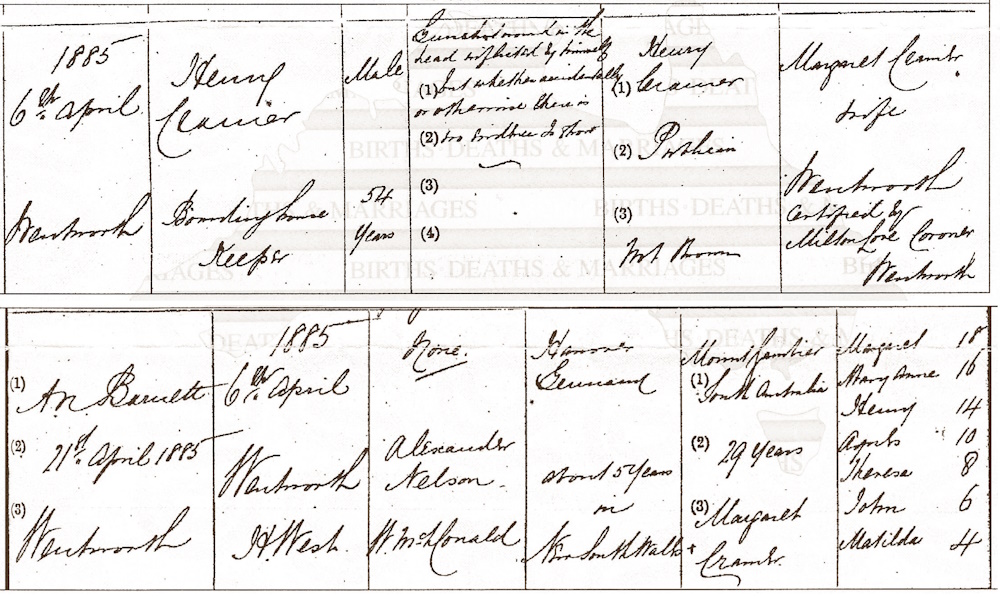 1885
6th April
Wentworth
Henry
Cramer
Boardinghouse
Keeper
Male
54
Years
Gunshot wound in the
head inflicted by himself
(1) but whether accidentally
or otherwise there is
(2) no evidence to show
(3)
(4)
Henry
(1) Cramer
(2)
(3)
Not Known
Margaret Cramer
wife
Wentworth
Certified by
Milton Love Coroner
Wentworth
BIRTHS DEATHS & MARRIAGES
(1)
A N Barnett
(2)
21st April 1885
(3)
Wentworth
1885
6th April
Wentworth
H West.
None.
Alexander
Nelson.
W McDonald
Hanover
Germany
about 5 Years
in
New South Wales
Mount Gambier
(1) South Australia
(2) 29 Years
(3) Margaret
Cramer.
Margaret 18
Mary Anne 16
Henry 14
Agnes 10
Theresa 8
John 6
Matilda 4